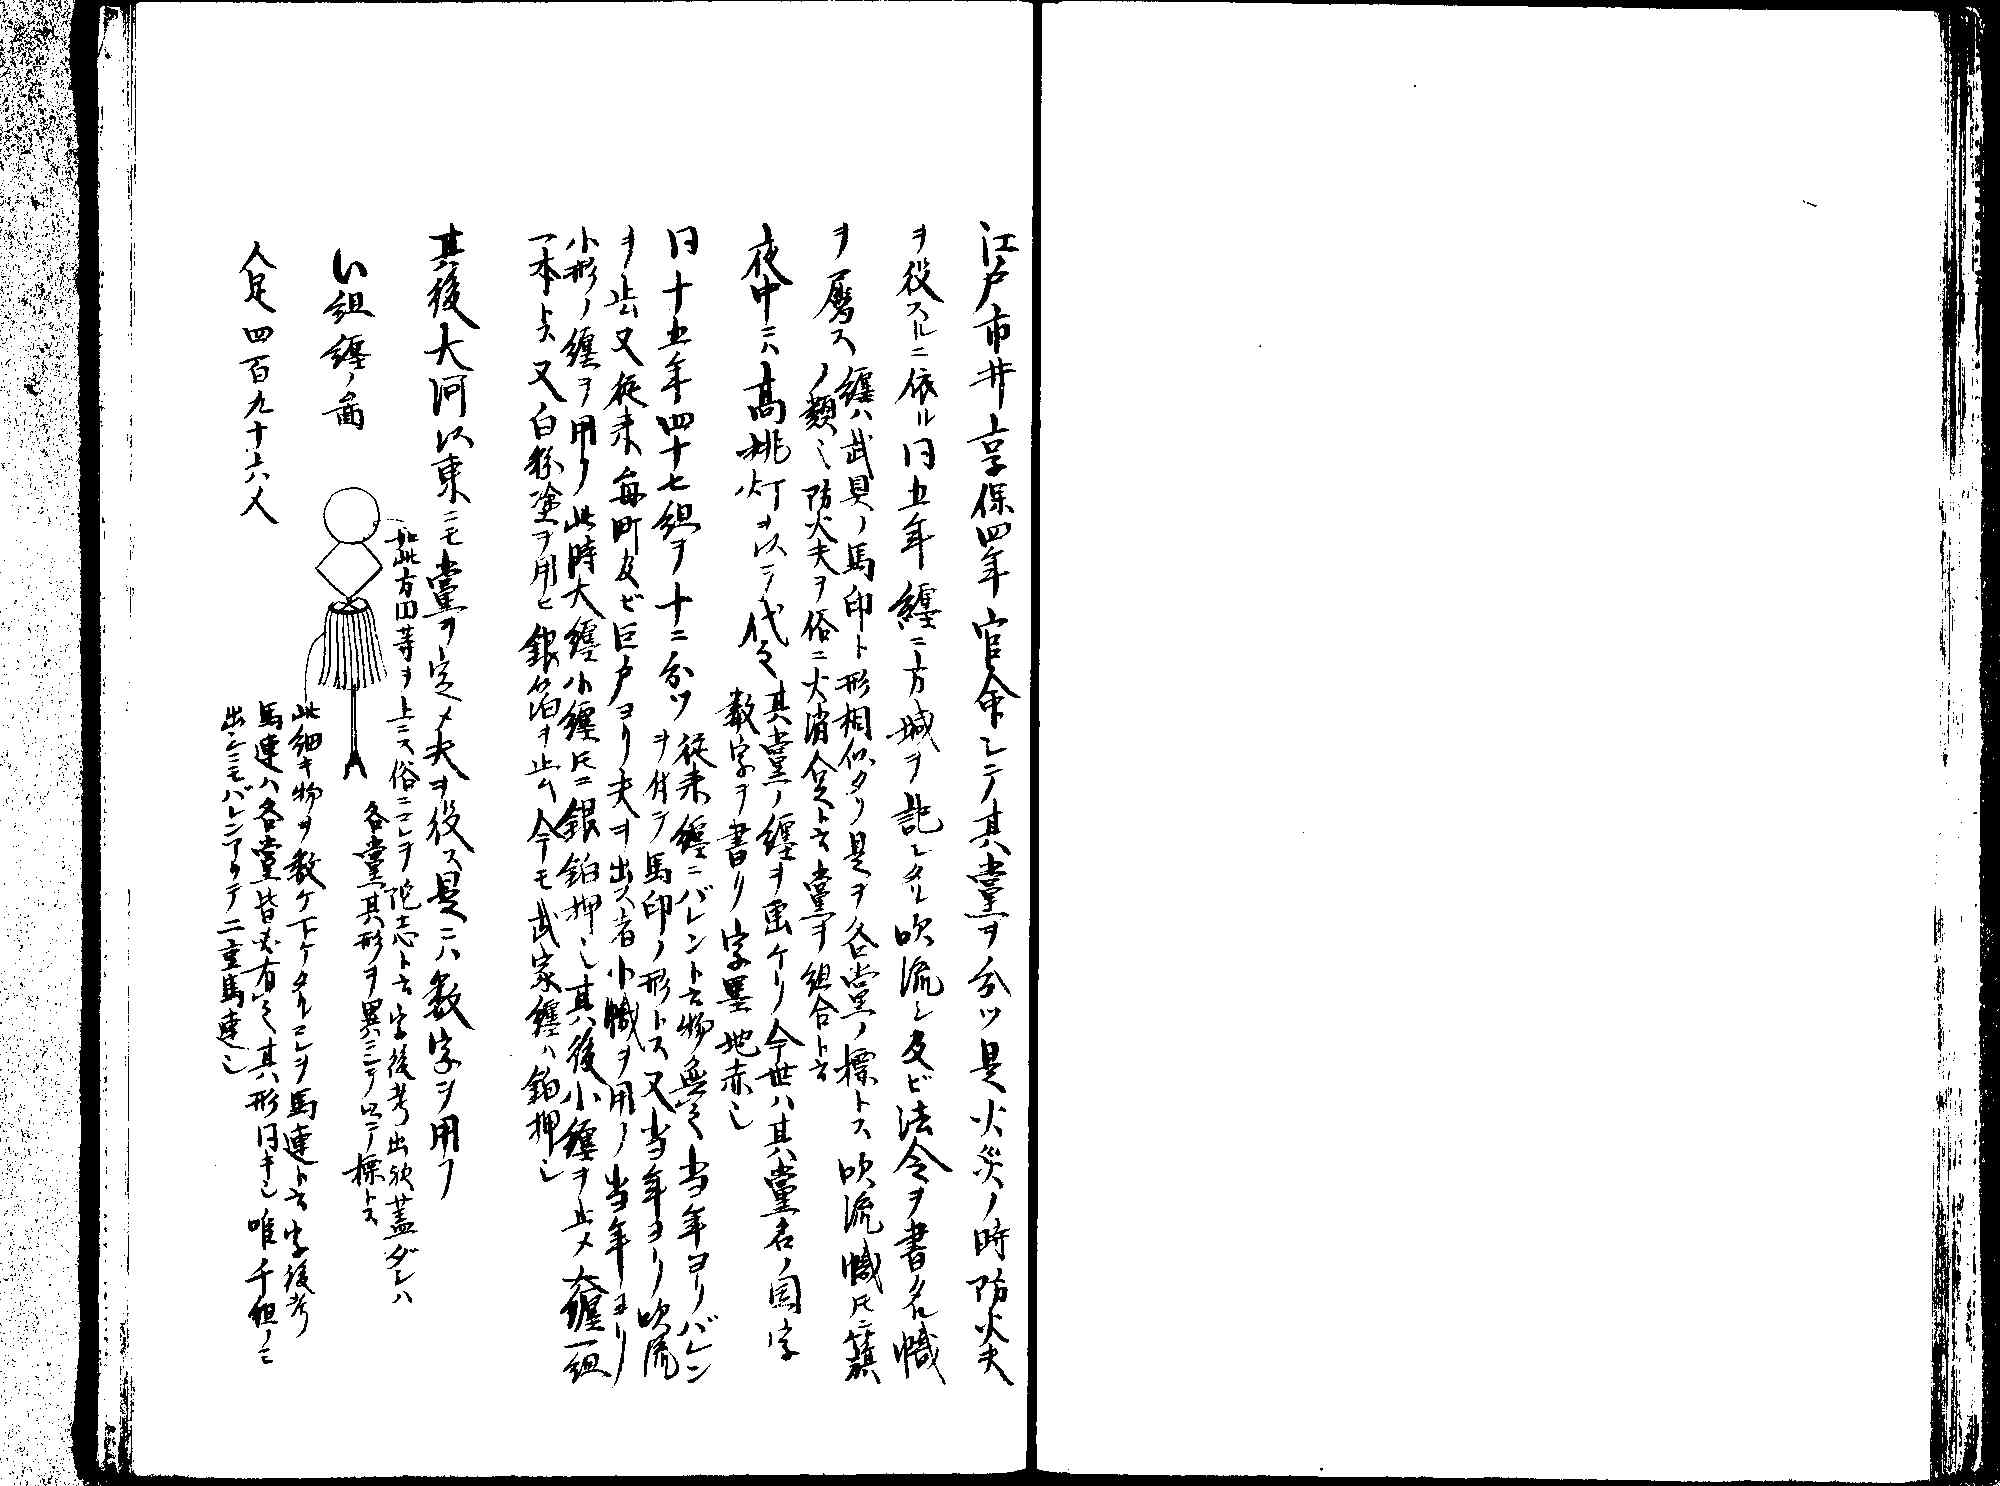 江戸市井享保四年官命シテ其黨ヲ分ツ是火災ノ時防火夫
ヲ役スルニ依ル同五年纏ニ方域ヲ記シタル吹流シ及ビ法令ヲ書タル幟
ヲ暦ス
纏ハ武具ノ馬印ト形相似タリ是ヲ各黨ノ標トス吹流幟トモニ籏
ノ類也防火夫ヲ俗ニ火消人足ト云黨ヲ組合ト云
夜中ニハ高挑灯ヲ以テ代之
其黨ノ纏ヲ画ケリ今世ハ其黨名ノ国字
数字ヲ書リ字墨地赤シ
同十五年四十七組ヲ十二分ツ
従来纏ニバレント云物無之当年ヨリバレン
ヲ付テ馬印ノ形トス又当年ヨリ吹流
ヲ止ム又従来毎町及ビ巨戸ヨリ夫ヲ出ス者小幟ヲ用フ当年ヨリ
小形ノ纏ヲ用フ此時大纏小纏トモニ銀箔押シ其後小纏ヲ止メ大纏一組
一本トス又白粉塗ヲ用ヒ銀箔ヲ止ム今モ武家纏ハ箔押シ
其後大河以東ニモ黨ヲ定メ夫ヲ役ス是ニハ数字ヲ用フ
い組纏ノ圖
如此方円等ヲ上ニス俗ニコレヲ陀志ト云字後考出欤蓋ダシハ
各黨其形ヲ異ニシテ以テ標トス
此細キ物ヲ数ケ下ケタルコレヲ馬連ト云字後考
馬連ハ各黨皆必有之其形同キシ唯千組ノミ
出シニモバレンアリテ二重馬連シ
人足四百九十六人